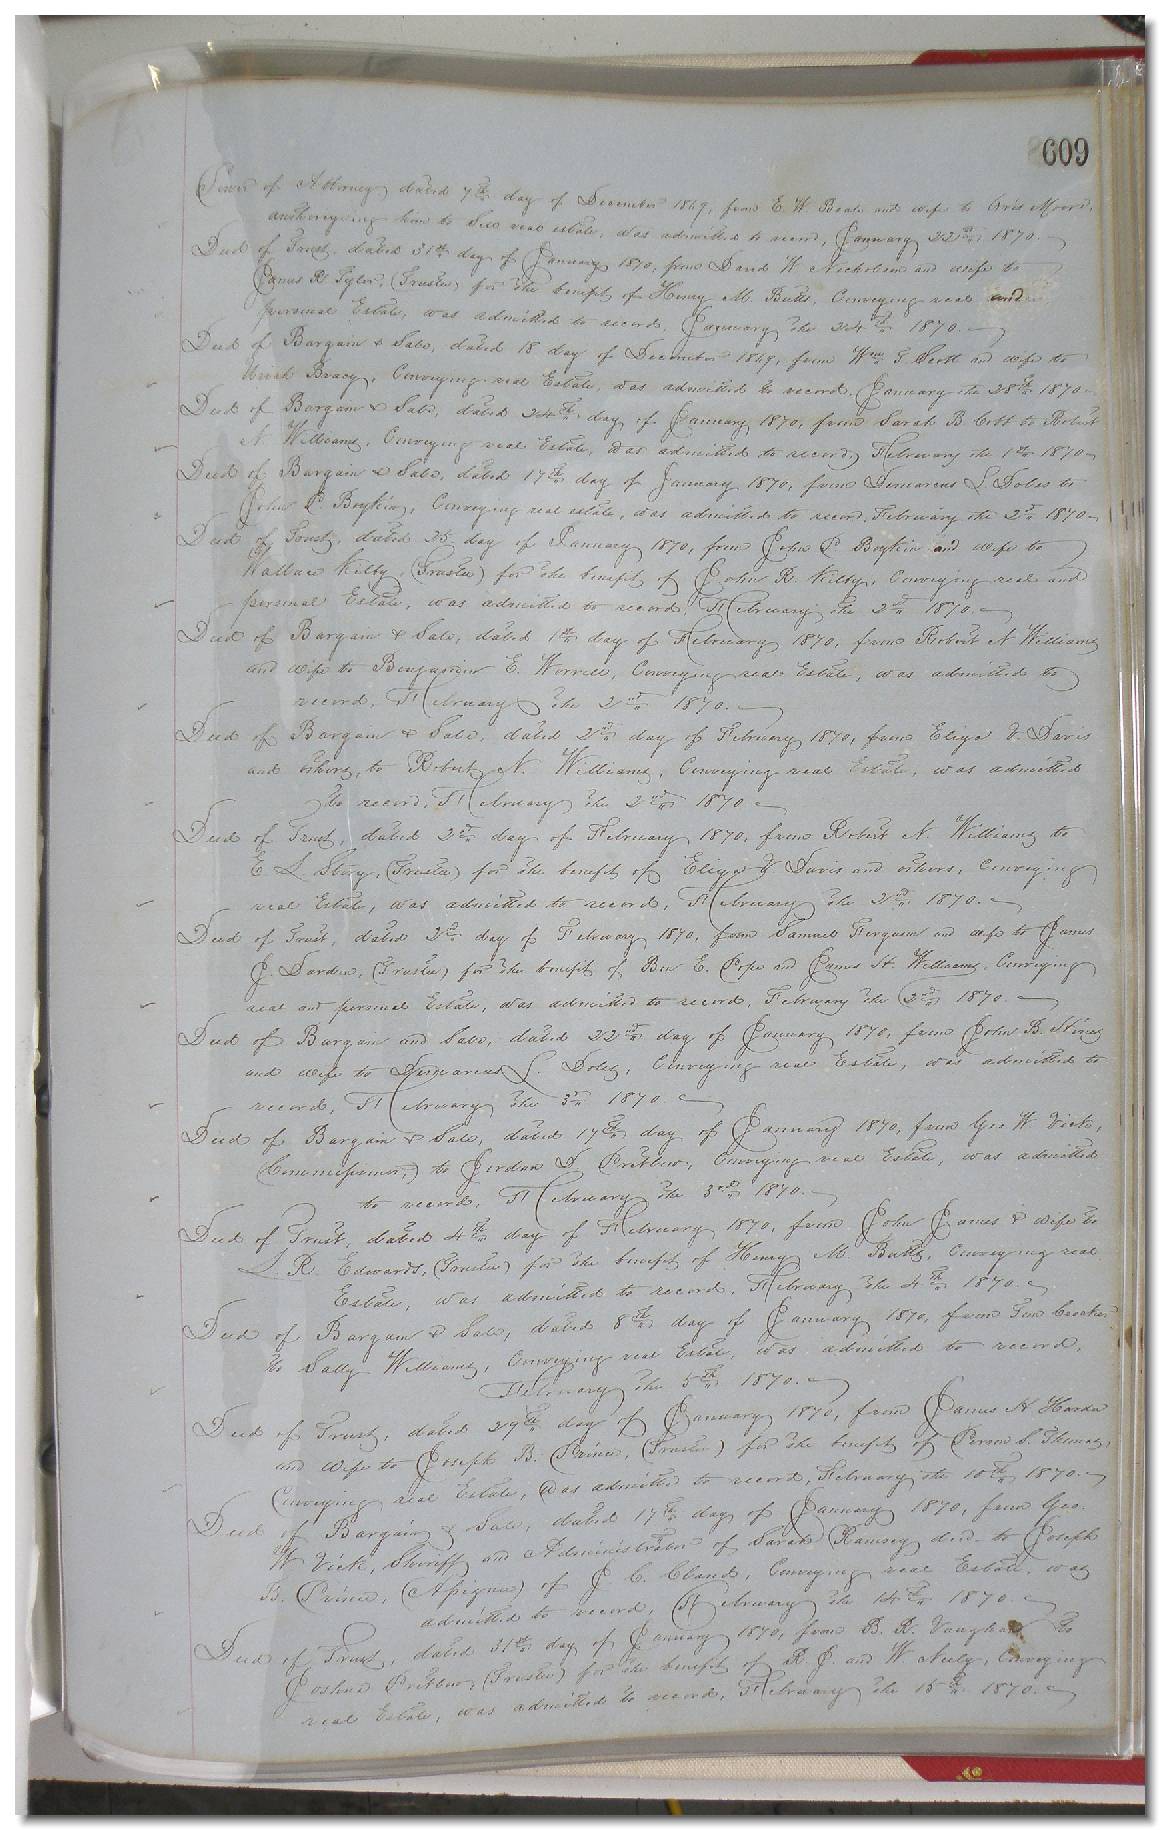 609
Power of Attorney dated 7th day of December 1869, from E. W. Beale and wife to Aris Moore,
authorizing him to Sell real estate, was admitted to record, January 22nd 1870.
Deed of Trust, dated 31st day of January 1870, from David W. Nicholson and wife to
James R Tyler, (Trustee) for the benefit of Henry M. Butts, Conveying real and
personal Estate, was admitted to record, January the 24th 1870.
Deed of Bargain & Sale, dated 18 day of December 1869, from Wm G Scott and wife to
Uriah Bracy, Conveying real Estate, was admitted to record, January the 28th 1870
Deed of Bargain & Sale, dated 24th day of January 1870, from Sarah B. Cobb to Robert
N Williams, Conveying real Estate, was admitted to record, February the 1st 1870
Deed of Bargain & Sale, dated 17th day of January 1870, from Demarcus L Doles to
John P. Boykin, Conveying real estate, was admitted to record, February the 2d 1870
Deed of Trust, dated 25 day of January 1870, from John P Boykin and wife to
Wallace Kilby, (Trustee) for the benefit of John R. Kilby, Conveying real and
personal Estate, was admitted to record, February the 2nd 1870.
Deed of Bargain & Sale, dated 1st day of February 1870, from Robert N Williams
and wife to Benjamin E. Worrell, Conveying real Estate, was admitted to
record, February the 2nd 1870.
Deed of Bargain & Sale, dated 2nd day of February 1870, from Eliza Y. Davis
and others, to Robert N. Williams, Conveying real Estate, was admitted
to record, February the 2nd 1870
Deed of Trust, dated 2nd day of February 1870, from Robert N. Williams to
E L Story, (Trustee) for the benefit of Eliza Y Davis and others, Conveying
real Estate, was admitted to record, February the 2nd 1870.
Deed of Trust, dated 2nd day of February 1870, from Samuel Ferguson and wife to James
J. Darden, (Trustee) for the benefit of Ben E. Pope and James H. Williams, Conveying
real and personal Estate, was admitted to record, February the 2nd 1870.
Deed of Bargain and Sale, dated 22nd day of January 1870, from John B. Stines
and wife to Demarcus L. Doles, Conveying real Estate, was admitted to
record, February the 3rd 1870.
Deed of Bargain & Sale, dated 17th day of January 1870, from Geo W Vick,
(Commissioner,) to Jordan D. Pretlow, Conveying real Estate, was admitted
to record, February the 3rd 1870.
Deed of Trust, dated 4th day of February 1870, from John James & wife to
L R. Edwards, (Trustee) for the benefit of Henry M. Butts, Conveying real
Estate, was admitted to record, February the 4th 1870.
Deed of Bargain & Sale, dated 8th day of January 1870, from Tom Crocker
to Sally Williams, Conveying real Estate, was admitted to record,
February the 5th 1870.
Deed of Trust, dated 29th day of January 1870, from James H Harden
and wife to Joseph B. Prince, (Trustee) for the benefit of Person S. Thomas,
Conveying real Estate, was admitted to record, February the 10th 1870.
Deed of Bargain & Sale, dated 17th day of January 1870, from Geo.
W Vick, Sheriff and Administrator of Sarah Ramsey decd. to Joseph
B. Prince, (Assignee) of J. C. Claud, Conveying real Estate, was
admitted to record, February the 14th 1870.
Deed of Trust, dated 31st day of January 1870, from B. R. Vaughan to
Joshua Pretlow, (Trustee) for the benefit of R. J. and W Neely, Conveying
real Estate, was admitted to record, February the 15th 1870.